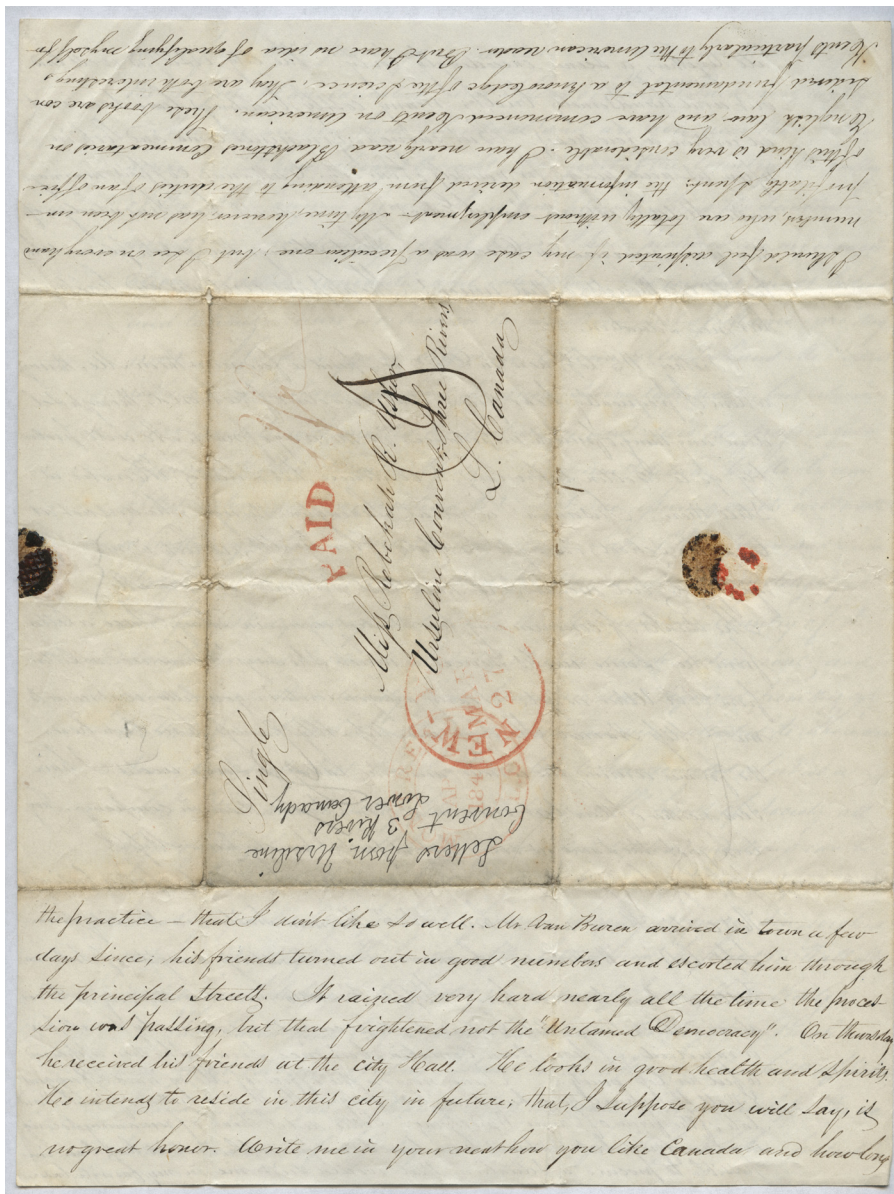 I should feel disapointed if my case was a peculiar one, but I see on every hand
numbers who are totally without employment. My time, however, has not been un-
profitably spent; the information derived from attending to the duties of an office
of this kind is very considerable. I have nearly read Blackstones Commentaries on
English law and have commenced Kents on American. These books are con-
sidered fundamental to a knowledge of the science. They are both interesting
Kents particularly to the American reader. But I have no idea of qualifying myself for
PAID
Miss Rebekah R. Usher,
Ursuline Convent Three Rivers
L. Canada
Single
NEW-Y
MAR
27
Letters from Ursuline
Convent 3 Rivers
Lower Canady
the practice — that I don't like so well. Mr Van Buren arrived in town a few
days since; his friends turned out in good numbers and escorted him through
the principal streets. It rained very hard nearly all the time the proces-
sion was passing, but that frightened not the "Untamed Democracy". On thursday
he received his friends at the city Hall. He looks in good health and spirits.
He intends to reside in this city in future; that, I suppose you will say, is
no great honor. Write me in your next how you like Canada and how long